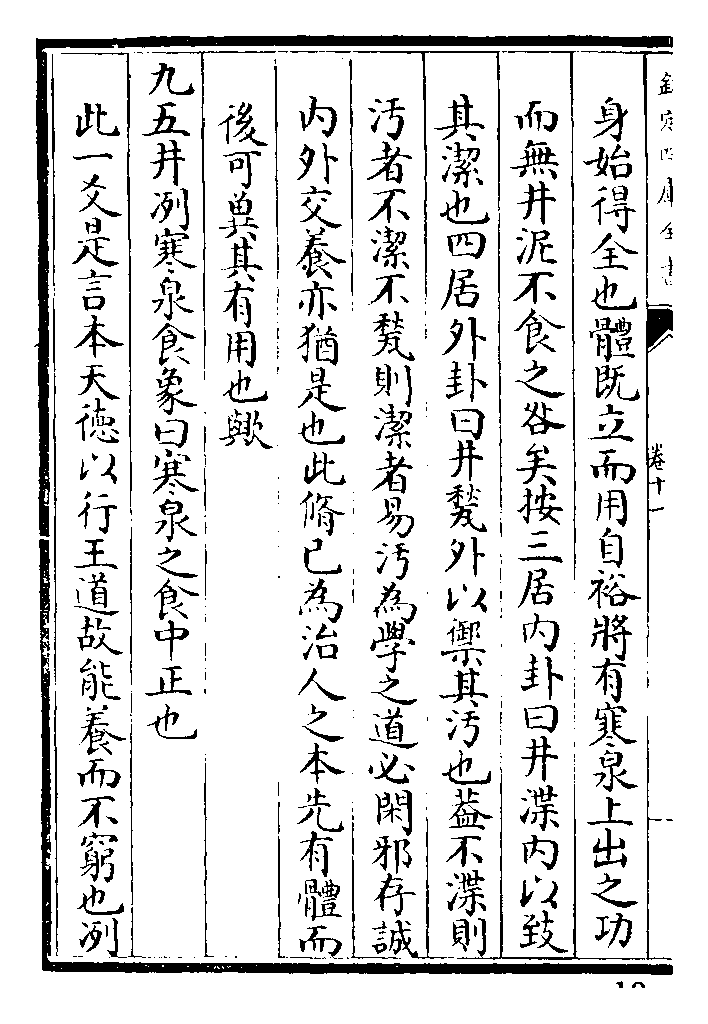 欽定四庫全書
卷十一
身始得全也體既立而用自裕將有寒泉上出之功
而無井泥不食之咎矣按三居内卦曰井渫内以致
其潔也四居外卦曰井甃外以禦其汚也葢不渫則
汚者不潔不甃則潔者易汚為學之道必閑邪存誠
内外交養亦猶是也此脩已為治人之本先有體而
後可兾其有用也歟
九五井冽寒泉食象曰寒泉之食中正也
此一爻是言本天德以行王道故能養而不窮也冽